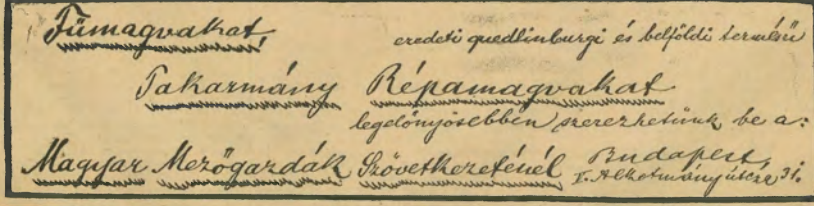 Fűmagvakat, eredeti quedlinburgi és belföldi termésű
Takarmány Répamagvakat
legelőnyösebben szerezhetünk be a:
Magyar Mezőgazdák Szövetkezeténél Budapest,
V. Alkotmány útcza 31.